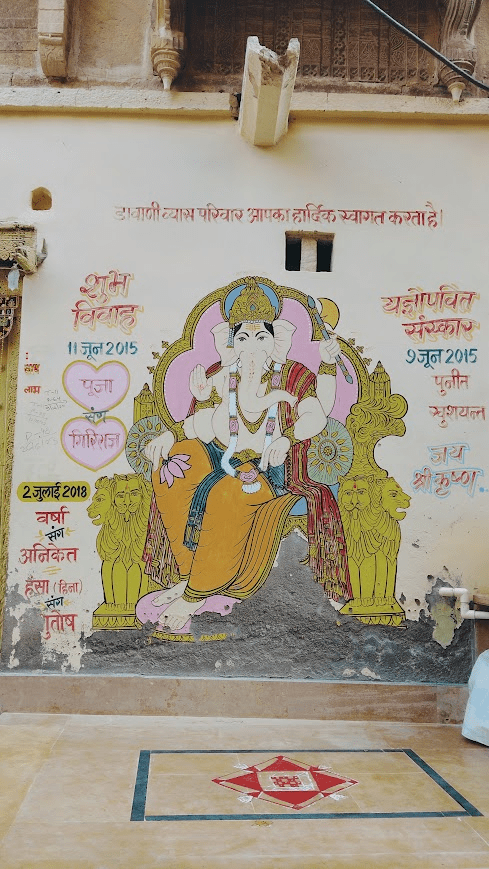 डावाणी व्यास परिवार आपका हार्दिक स्वागत करता है।
शुभ
विवाह
11 जून 2015
पूजा
संग
गिरिराज
2 जुलाई 2018
वर्षा
संग
अनिकेत
हंसा (हिना)
संग
यज्ञोपवित
संस्कार
9 जून 2015
पुनीत
जय
श्री कृष्ण